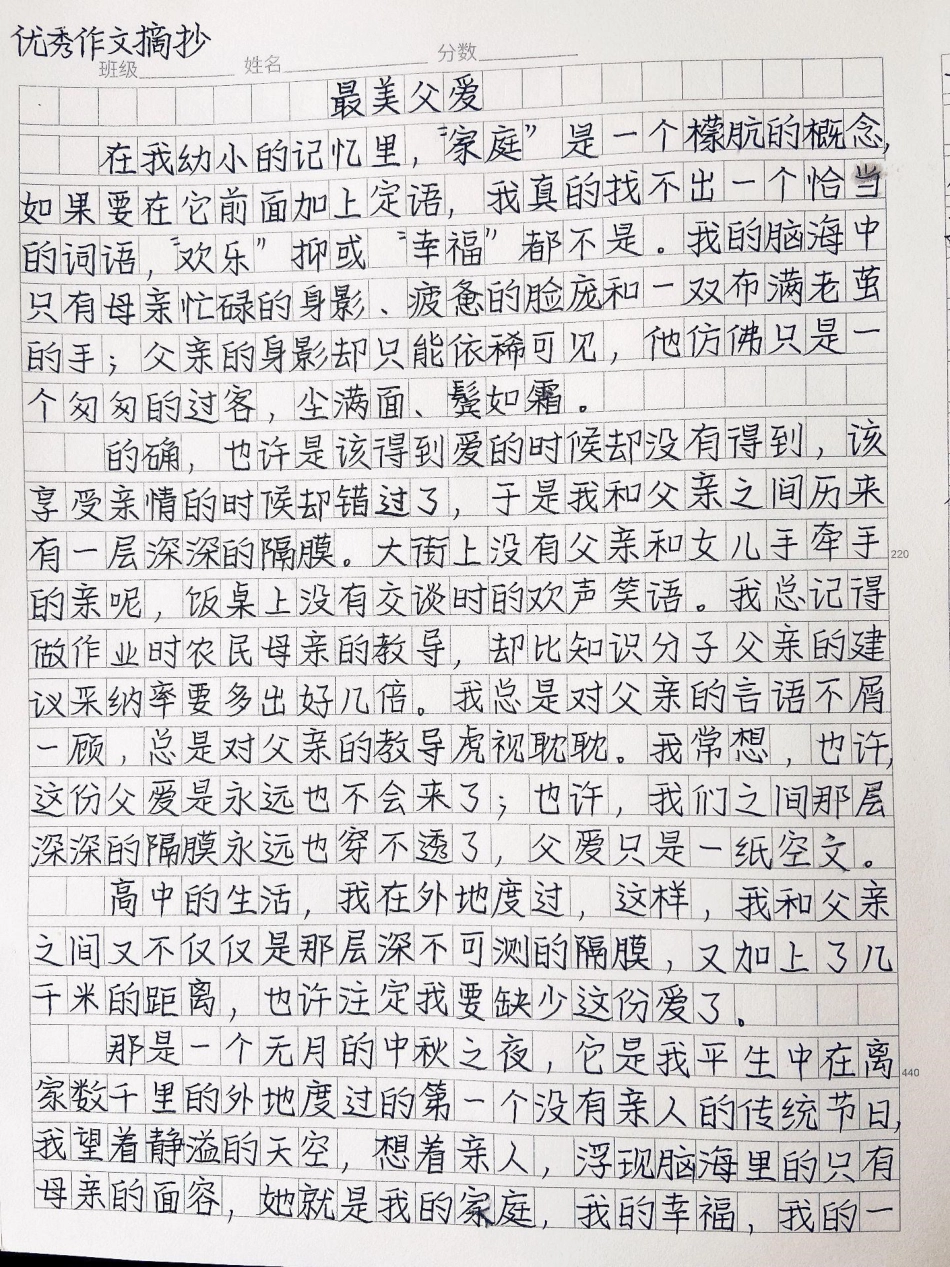 优秀作文摘抄
班级 姓名 分数
最美父爱
在我幼小的记忆里，“家庭”是一个檬肮的概念，
如果要在它前面加上定语，我真的找不出一个恰当
的词语，“欢乐”抑或“幸福”都不是。我的脑海中
只有母亲忙碌的身影、疲惫的脸庞和一双布满老茧
的手；父亲的身影却只能依稀可见，他仿佛只是一
个匆匆的过客，尘满面、鬓如霜。
的确，也许是该得到爱的时候却没有得到，该
享受亲情的时候却错过了，于是我和父亲之间历来
有一层深深的隔膜。大街上没有父亲和女儿手牵手
220
的亲昵，饭桌上没有交谈时的欢声笑语。我总记得
做作业时农民母亲的教导，却比知识分子父亲的建
议采纳率要多出好几倍。我总是对父亲的言语不屑
一顾，总是对父亲的教导虎视眈眈。我常想，也许，
这份父爱是永远也不会来了；也许，我们之间那层
深深的隔膜永远也穿不透了，父爱只是一纸空文。
高中的生活，我在外地度过，这样，我和父亲
之间又不仅仅是那层深不可测的隔膜，又加上了几
千米的距离，也许注定我要缺少这份爱了。
那是一个无月的中秋之夜，它是我平生中在离
440
家数千里的外地度过的第一个没有亲人的传统节日，
我望着静溢的天空，想着亲人，浮现脑海里的只有
母亲的面容，她就是我的家庭，我的幸福，我的一